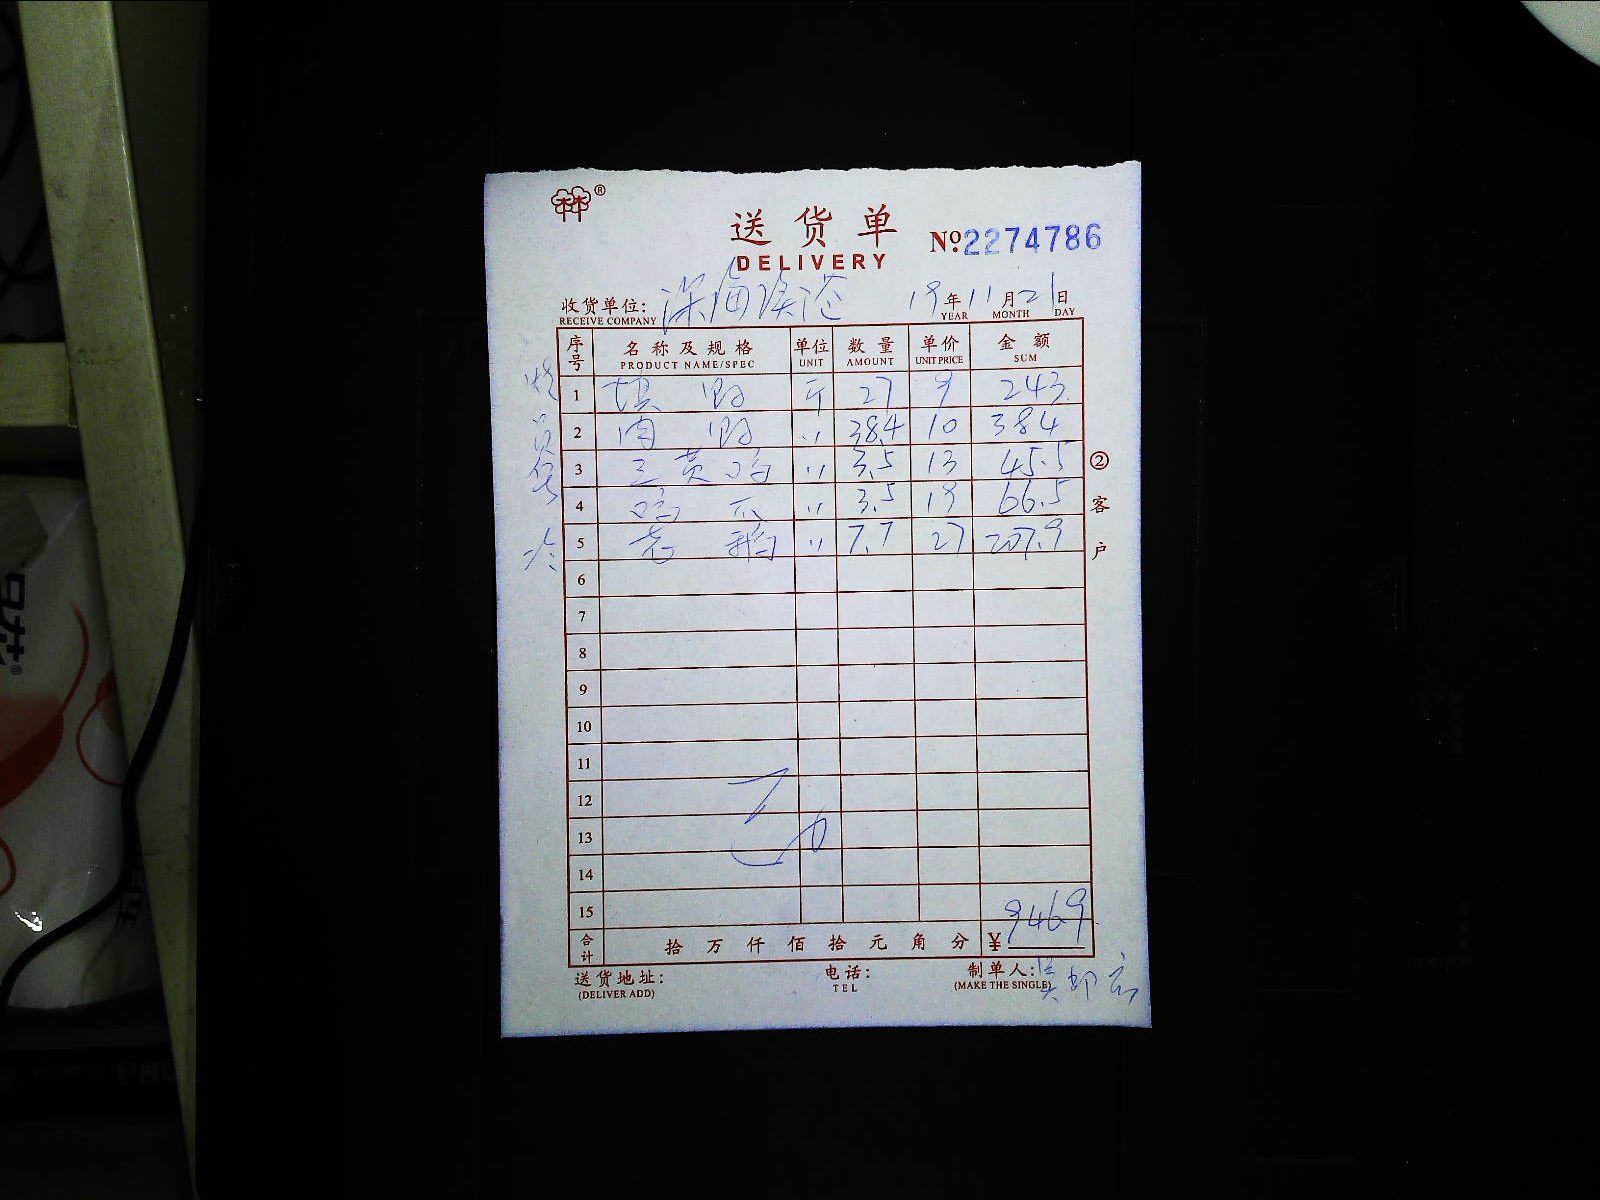 林®
送货单
DELIVERY
Nº 2274786
收货单位:
RECEIVE COMPANY
19年11月21日
YEAR MONTH DAY
序号 名称及规格 单位 数量 单价 金额
PRODUCT NAME/SPEC UNIT AMOUNT UNIT PRICE SUM
1 斤 27 9 243
2 肉 〃 38.4 10 384
3 三黄鸡 〃 3.5 13 45.5
4 鸡爪 〃 3.5 19 66.5
5 老鹅 〃 7.7 27 207.9
6
7
8
9
10
11
12
13
14
15
合计 拾万仟佰拾元角分 ¥ 946.9
送货地址: 电话: 制单人:
(DELIVER ADD) TEL (MAKE THE SINGLE)
②客户
收货